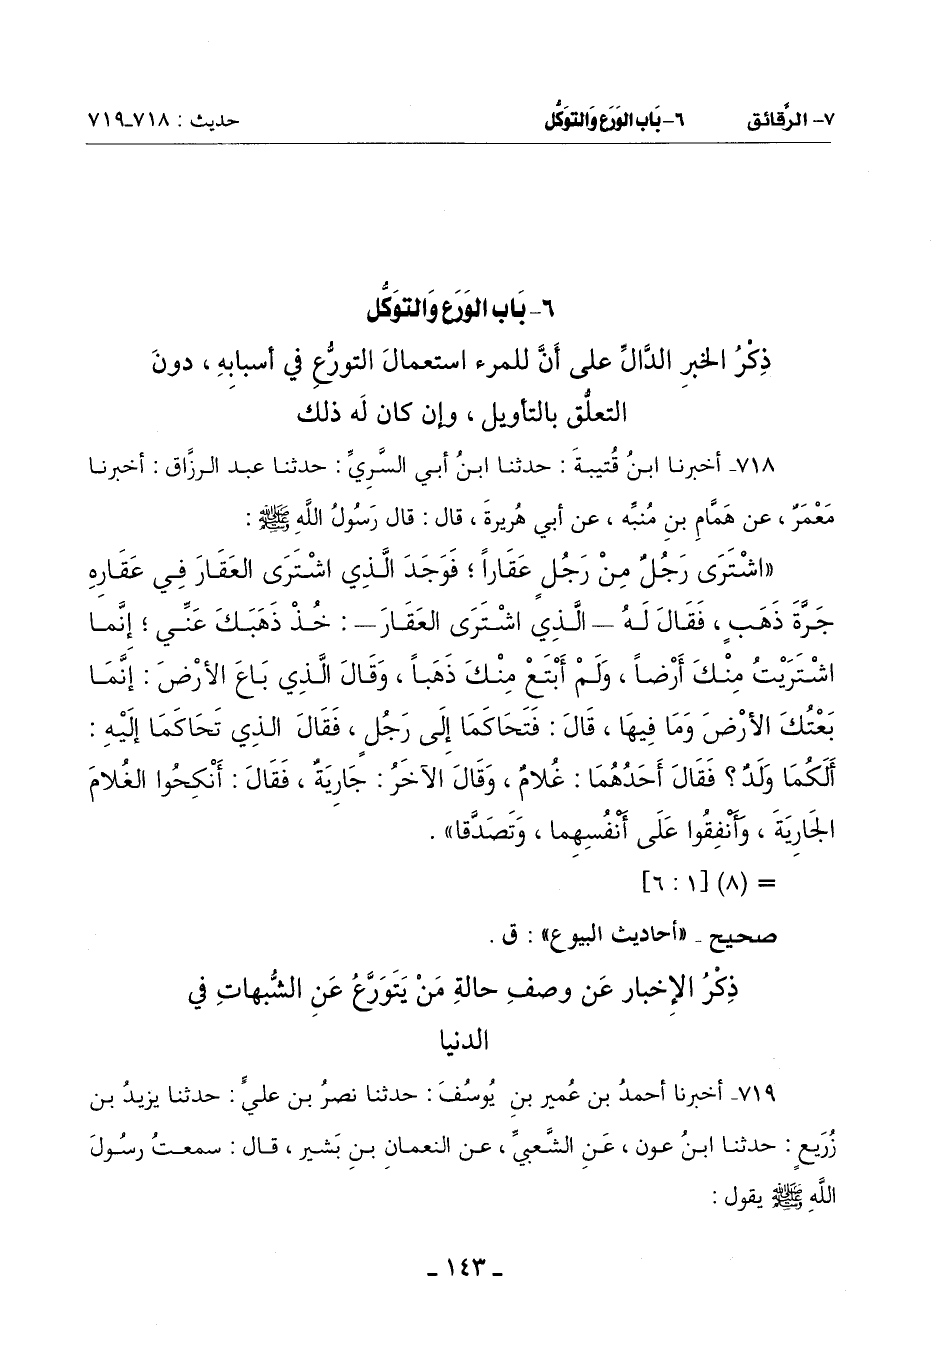 ٧- الرَّقائق ٦- بَاب الوَرَع وَالتوَكُّل حديث : ٧١٨ـ٧١٩
٦- بَاب الوَرَع وَالتوَكُّل
ذِكْرُ الخبرِ الدَّالِّ على أَنَّ للمرء استعمالَ التورُّعِ في أسبابِهِ ، دونَ
التعلُّق بالتأويل ، وإن كان لَه ذلك
٧١٨ـ أخبرنا ابنُ قُتيبةَ : حدثنا ابنُ أبي السَّريِّ : حدثنا عبد الرزَّاق : أخبرنا
مَعْمَرٌ ، عن هَمَّامِ بنِ مُنبِّه ، عن أبي هُريرةَ ، قال : قال رَسُولُ اللَّهِ ﷺ :
«اشْتَرَى رَجُلٌ مِنْ رَجُلٍ عَقَاراً ؛ فَوَجَدَ الَّذِي اشْتَرَى العَقَارَ فِي عَقَارِهِ
جَرَّةَ ذَهَبٍ ، فَقَالَ لَهُ – الَّذِي اشْتَرَى العَقَارَ – : خُذْ ذَهَبَكَ عَنِّي ؛ إِنَّمَا
اشْتَرَيْتُ مِنْكَ أَرْضاً ، وَلَمْ أَبْتَعْ مِنْكَ ذَهَباً ، وَقَالَ الَّذِي بَاعَ الأَرْضَ : إِنَّمَا
بَعْتُكَ الأَرْضَ وَمَا فِيهَا ، قَالَ : فَتَحَاكَمَا إِلَى رَجُلٍ ، فَقَالَ الذِي تَحَاكَمَا إِلَيْهِ :
أَلَكُمَا وَلَدٌ ؟ فَقَالَ أَحَدُهُمَا : غُلامٌ ، وَقَالَ الآخَرُ : جَارِيَةٌ ، فَقَالَ : أَنْكِحُوا الغُلامَ
الجَارِيَةَ ، وَأَنْفِقُوا عَلَى أَنْفُسِهِما ، وَتَصَدَّقا» .
= (٨) [١ : ٦]
صحيح ـ «أحاديث البيوع» : ق .
ذِكْرُ الإخبارِ عَن وصفِ حالةِ مَنْ يَتَوَرَّعُ عَنِ الشُّبهاتِ في
الدنيا
٧١٩ـ أخبرنا أحمدُ بن عُميرِ بنِ يُوسُفَ : حدثنا نصرُ بن عليٍّ : حدثنا يزيدُ بن
زُرَيعٍ : حدثنا ابنُ عون ، عَنِ الشَّعبيِّ ، عن النعمانِ بنِ بَشيرٍ ، قال : سمعتُ رسُولَ
اللَّهِ ﷺ يقول :
ـ ١٤٣ ـ